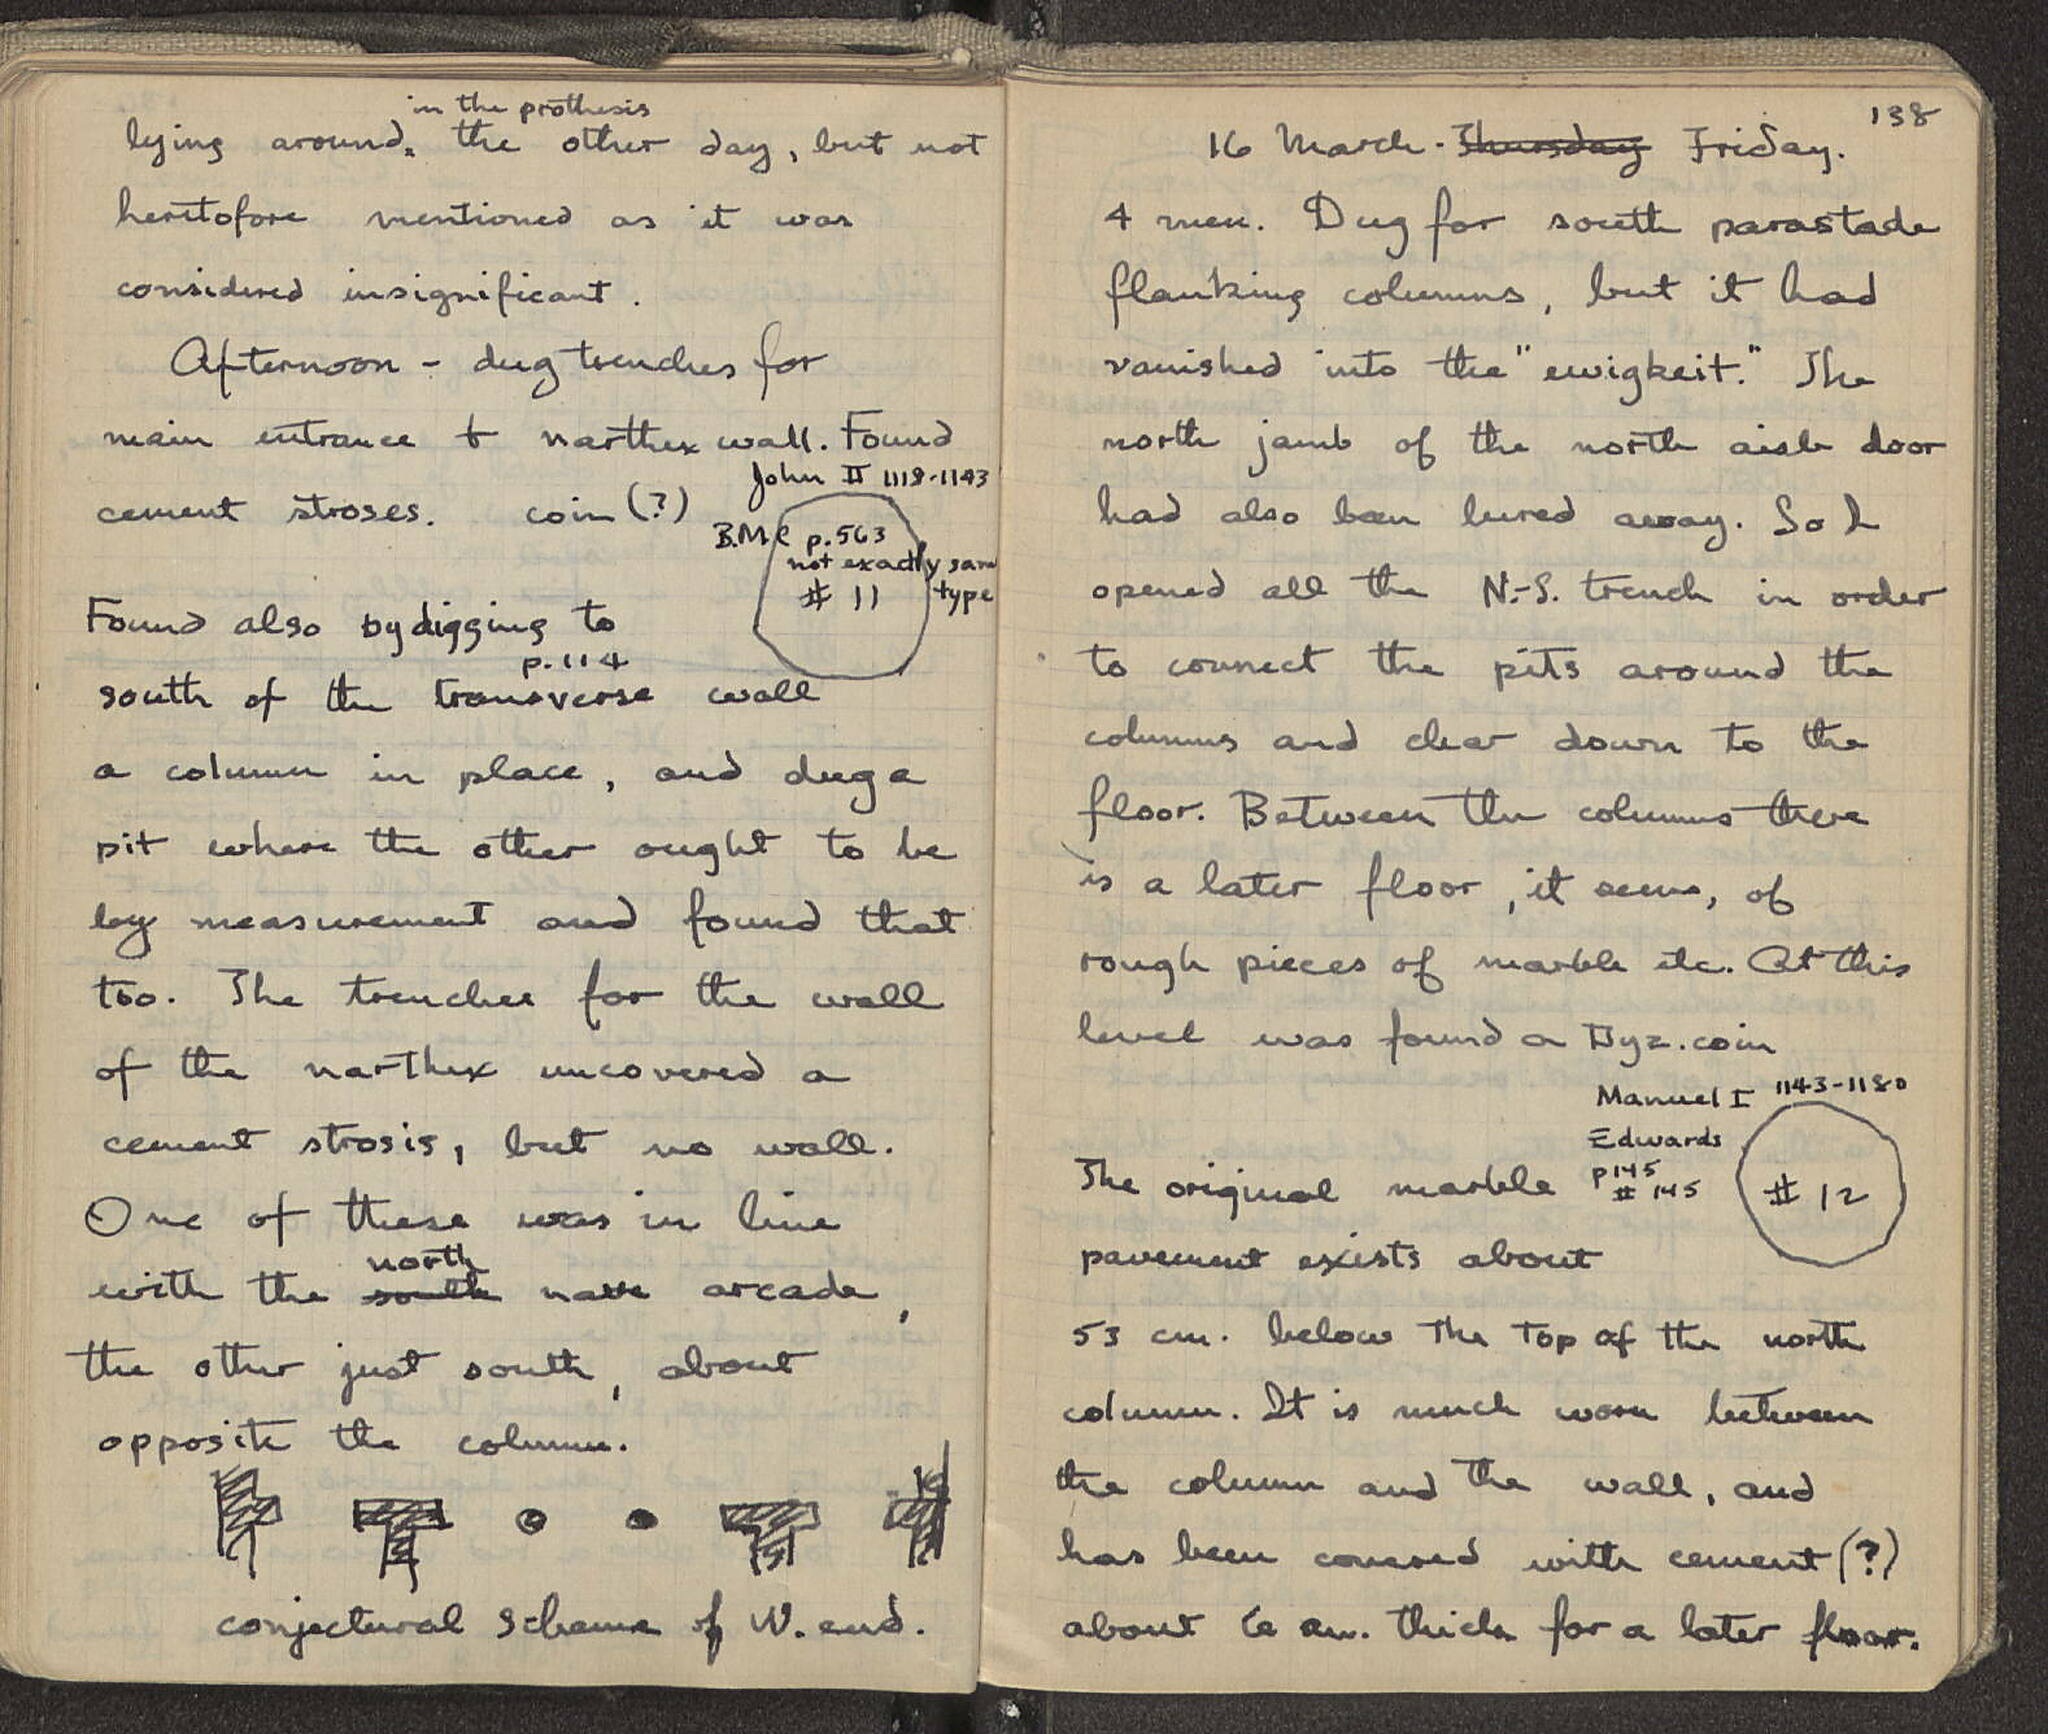 in the prothesis
lying around, the other day, but not
heretofore mentioned as it was
considered insignificant.
Afternoon - dug trenches for
main entrance + narthex wall. Found
John II 1118-1143
cement stroses. coin (?)
B.M.C p.563
not exactly same
# 11 type
Found also by digging to
p. 114
south of the transverse wall
a column in place, and dug a
pit where the other ought to be
by measurement and found that
too. The trenches for the wall
of the narthex uncovered a
cement strosis, but no wall.
One of these was in line
north
with the south nave arcade,
the other just south, about
opposite the column.
conjectural scheme of W. end.
138
16 March - Thursday Friday.
4 men. Dug for south parastade
flanking columns, but it had
vanished into the "ewigkeit." The
north jamb of the north aisle door
had also been lured away. So I
opened all the N.-S. trench in order
to connect the pits around the
columns and clear down to the
floor. Between the columns there
is a later floor, it seems, of
rough pieces of marble etc. At this
level was found a Byz. coin
Manuel I 1143-1180
Edwards
p 145
# 145
# 12
The original marble
pavement exists about
53 cm. below the top of the north
column. It is much worn between
the column and the wall, and
has been covered with cement (?)
about 6 cm. thick for a later floor.